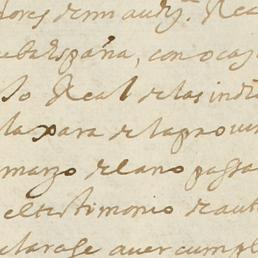 dores de mi audi.ª Real
ueba españa, con ocas
so Real de las indi
la xara de la prouin
marzo del ano passa
el testimonio de aut
clarase auer cumpl